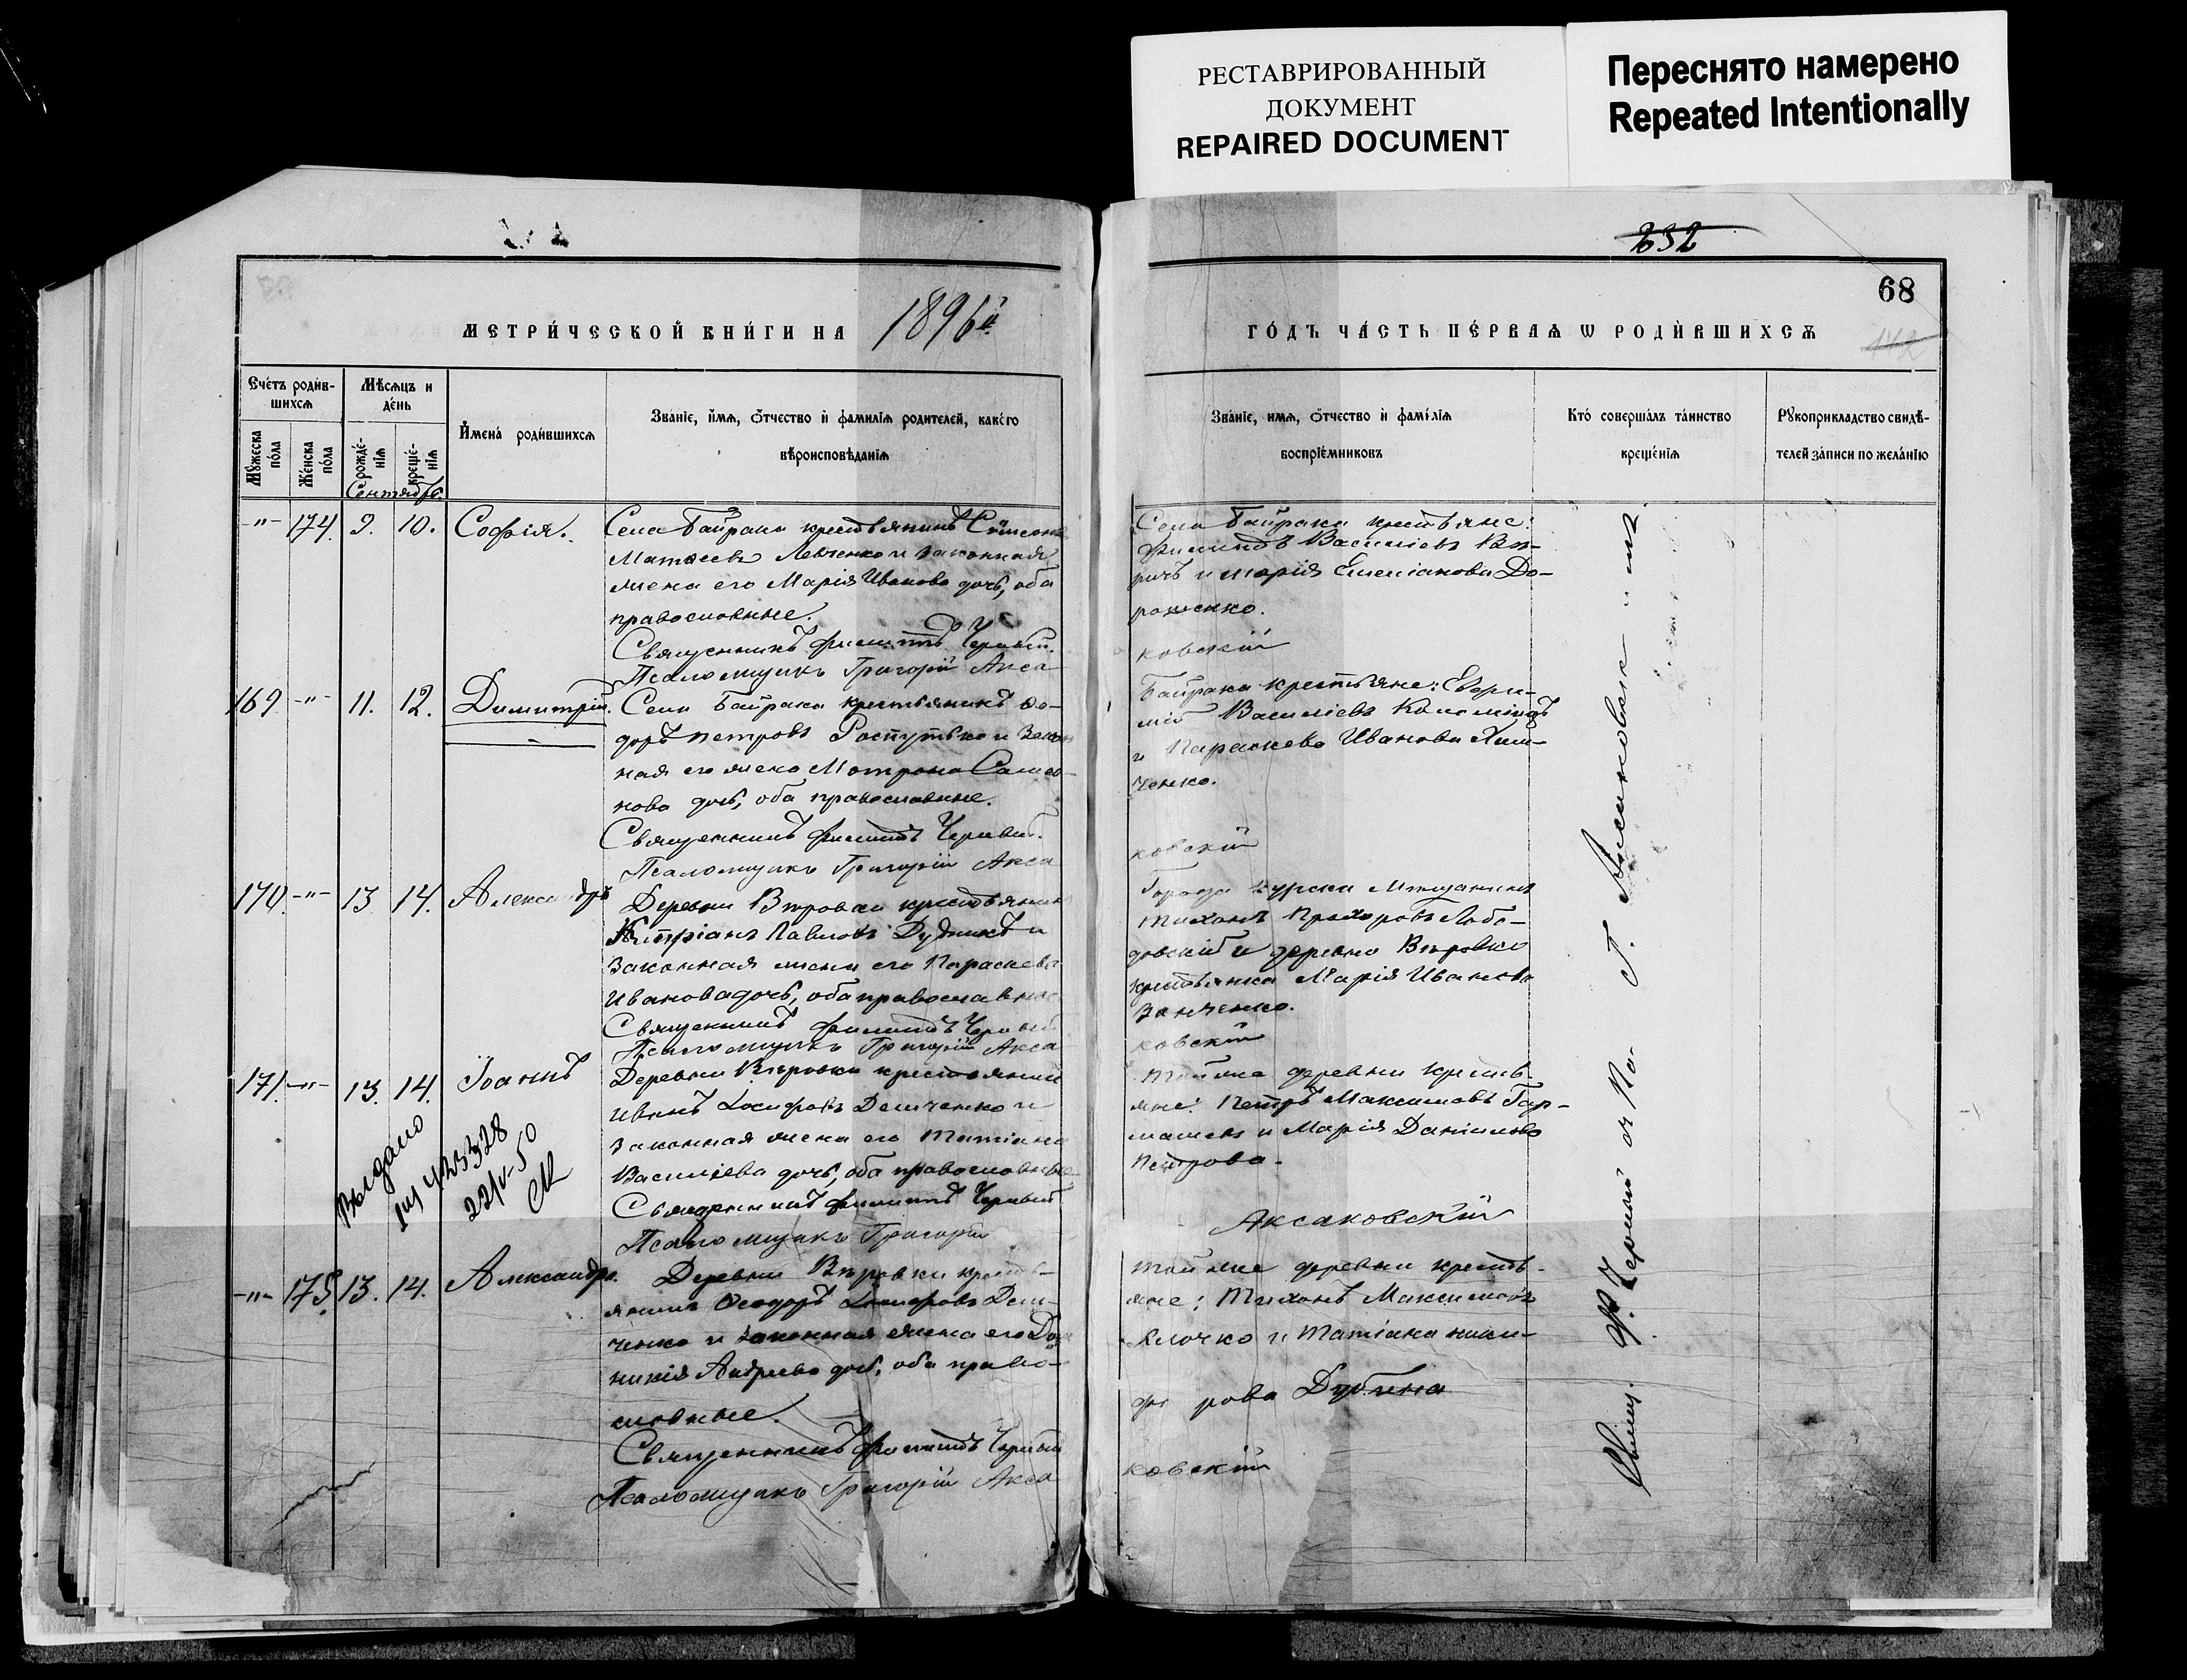 РЕСТАВРИРОВАННЫЙ
ДОКУМЕНТ
REPAIRED DOCUMENT
Переснято намерено
Repeated Intentionally
232
68
142
МЕТРИ́ЧЕСКОЙ КНИ́ГИ НА 1896й
ГО́ДЪ ЧА́СТЬ ПЕ́РВАѦ Ѡ РОДИ́ВШИХСѦ
Счётъ роди́в-
шихсѧ
Мꙋ́жеска
по́ла
Же́нска
по́ла
Мѣ́сѧцъ и
де́нь
рожде́-
нїѧ
креще́-
нїѧ
Сентябрь.
И҆мена̀ роди́вшихсѧ
Зва́нїе, и҆́мѧ, ѻ҆́тчество и҆ фами́лїѧ роди́телей, како́го
вѣроисповѣ́данїѧ
Зва́нїе, имѧ, ѻ҆́тчество и҆ фамі́лїѧ
воспрїе́мниковъ
Кто́ соверша́лъ та́инство
креще́нїѧ
Рꙋкоприкладство свидѣ-
телей за́писи по жела́нїю
-"- 174. 9. 10. Софія.
Села Байрака крестьянинъ Сѵмеонъ
Матѳеевъ Левченко и законная
жена его Марія Иванова дочь, оба
православные.
Священникъ Филиппъ Червый.
Псаломщикъ Григорій Акса
Села Байрака крестьяне:
Филиппъ Василіевъ
и Марія Емеліанова До-
рошенко.
ковскій
169. -"- 11. 12. Димитрій.
Села Байрака крестьянинъ Ѳео-
доръ Петровъ Роспутько и закон
ная его жена Мотрона Самсо-
нова дочь, оба православные.
Священникъ Филиппъ Червый.
Псаломщикъ Григорій Акса
Байрака крестьяне: Евфи-
мій Василіевъ
и Параскева Иванова Хим-
ченко.
ковскій
170. -"- 13 14. Александръ
Деревни Вѣровки крестьянинъ
Кипріанъ Павловъ Дудникъ и
законная жена его Параскева
Иванова дочь, оба православные
Священникъ Филиппъ Червый
Псаломщикъ Григорій Акса
Города Курска Мѣщанинъ
Тихонъ Прохоровъ Лобо-
довскій и деревни Вѣровки
крестьянка Марія Иванова
Занченко.
ковскій
171. -"- 13. 14. Іоаннъ
Деревни Вѣровки крестьянинъ
Иванъ Іосифовъ Демченко и
законная жена его Татіана
Василіева дочь, оба православные
Священникъ Филиппъ Червый
Псаломщикъ Григорій
Той же деревни кресть-
яне: Петръ Максимовъ Гар-
машевъ и Марія Даніилова
Петрова.
Аксаковскій
Выдано
22/V-50
-"- 175. 13. 14. Александра.
Деревни Вѣровки кресть-
янинъ Ѳеодоръ Іосифовъ Дем-
ченко и законная жена его До
никія Андреева дочь, оба право-
славные.
Священникъ Филиппъ Червый
Псаломщикъ Григорій Акса
Той же деревни кресть-
яне: Тихонъ Максимовъ
Клочко и Татіана Ники-
фо рова Дубина
ковскій
Свящ. Ф. Червый и Пс. Г. Аксаковскій